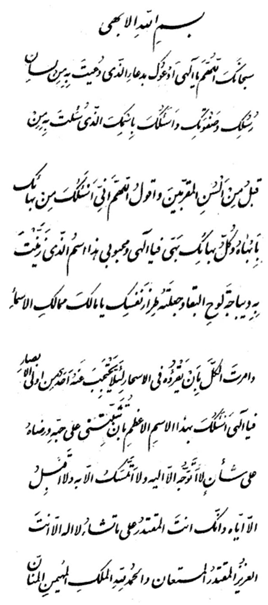 بسم الله الابهی
سبحانک اللهم یا الهی ادعوک بدعاء الذی دعیت به من لسان
رسلک و صفوتک و اسئلک باسمک الذی سئلت به من
قبل من السن المقربین و اقول اللهم انی اسئلک من بهائک
بابهاه و کل بهائک بهی فیا الهی و محبوبی هذا اسم الذی زینت
به دیباجة لوح البقاء و جعلته طراز نفسک یا مالک ممالک الاسماء
و امرت الکل بان یقرؤه فی الاسحار لئلا یحتجب عنه احد من اولی الابصار
فیا الهی اسئلک بهذا الاسم الاعظم بان تثبتنی علی حبه و رضاه
علی شأن لا اتوجه الا الیه و لا اتمسک الا به و لا اقبل
الا ایاه و انک انت المقتدر علی ما تشاء لا اله الا انت
العزیز المقتدر المستعان و الحمد لله الملک المهیمن المنان